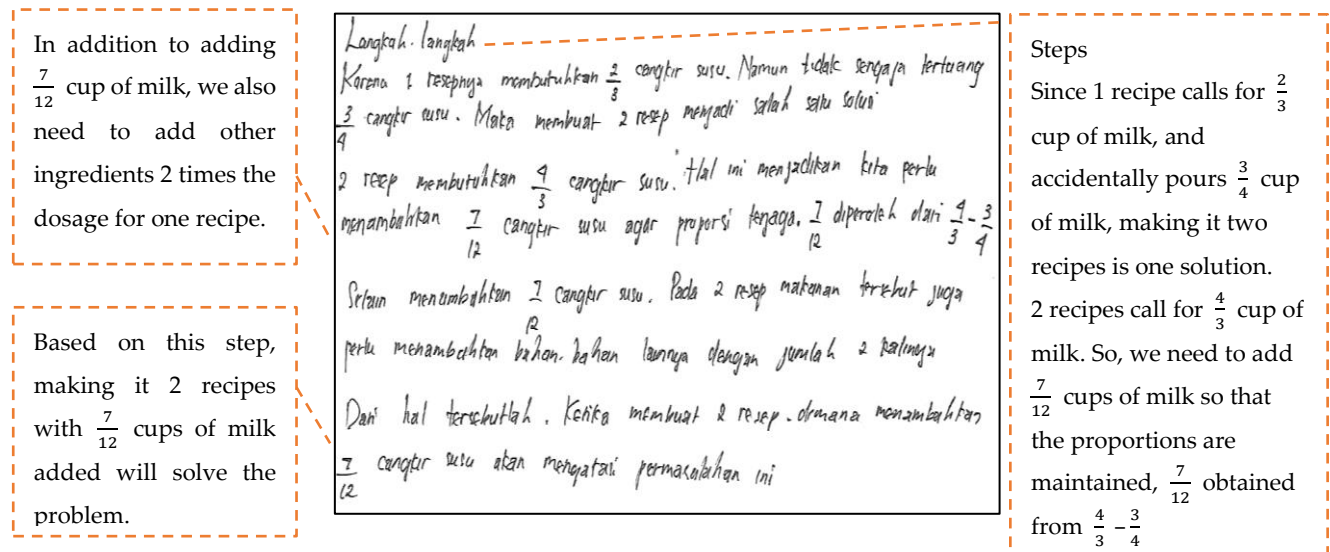 In addition to adding
7/12 cup of milk, we also
need to add other
ingredients 2 times the
dosage for one recipe.
Based on this step,
making it 2 recipes
with 7/12 cups of milk
added will solve the
problem.
Langkah-langkah
Karena 1 resepnya membutuhkan 2/3 cangkir susu. Namun tidak sengaja tertuang
3/4 cangkir susu. Maka membuat 2 resep menjadi salah satu solusi
2 resep membutuhkan 4/3 cangkir susu. Hal ini menjadikan kita perlu
menambahkan 7/12 cangkir susu agar proporsi terjaga. 7/12 diperoleh dari 4/3 - 3/4
Selain menambahkan 7/12 cangkir susu. Pada 2 resep makanan tersebut juga
perlu menambahkan bahan-bahan lainnya dengan jumlah 2 kalinya
Dari hal tersebutlah. Ketika membuat 2 resep. dimana menambahkan
7/12 cangkir susu akan mengatasi permasalahan ini
Steps
Since 1 recipe calls for 2/3
cup of milk, and
accidentally pours 3/4 cup
of milk, making it two
recipes is one solution.
2 recipes call for 4/3 cup of
milk. So, we need to add
7/12 cups of milk so that
the proportions are
maintained, 7/12 obtained
from 4/3 − 3/4